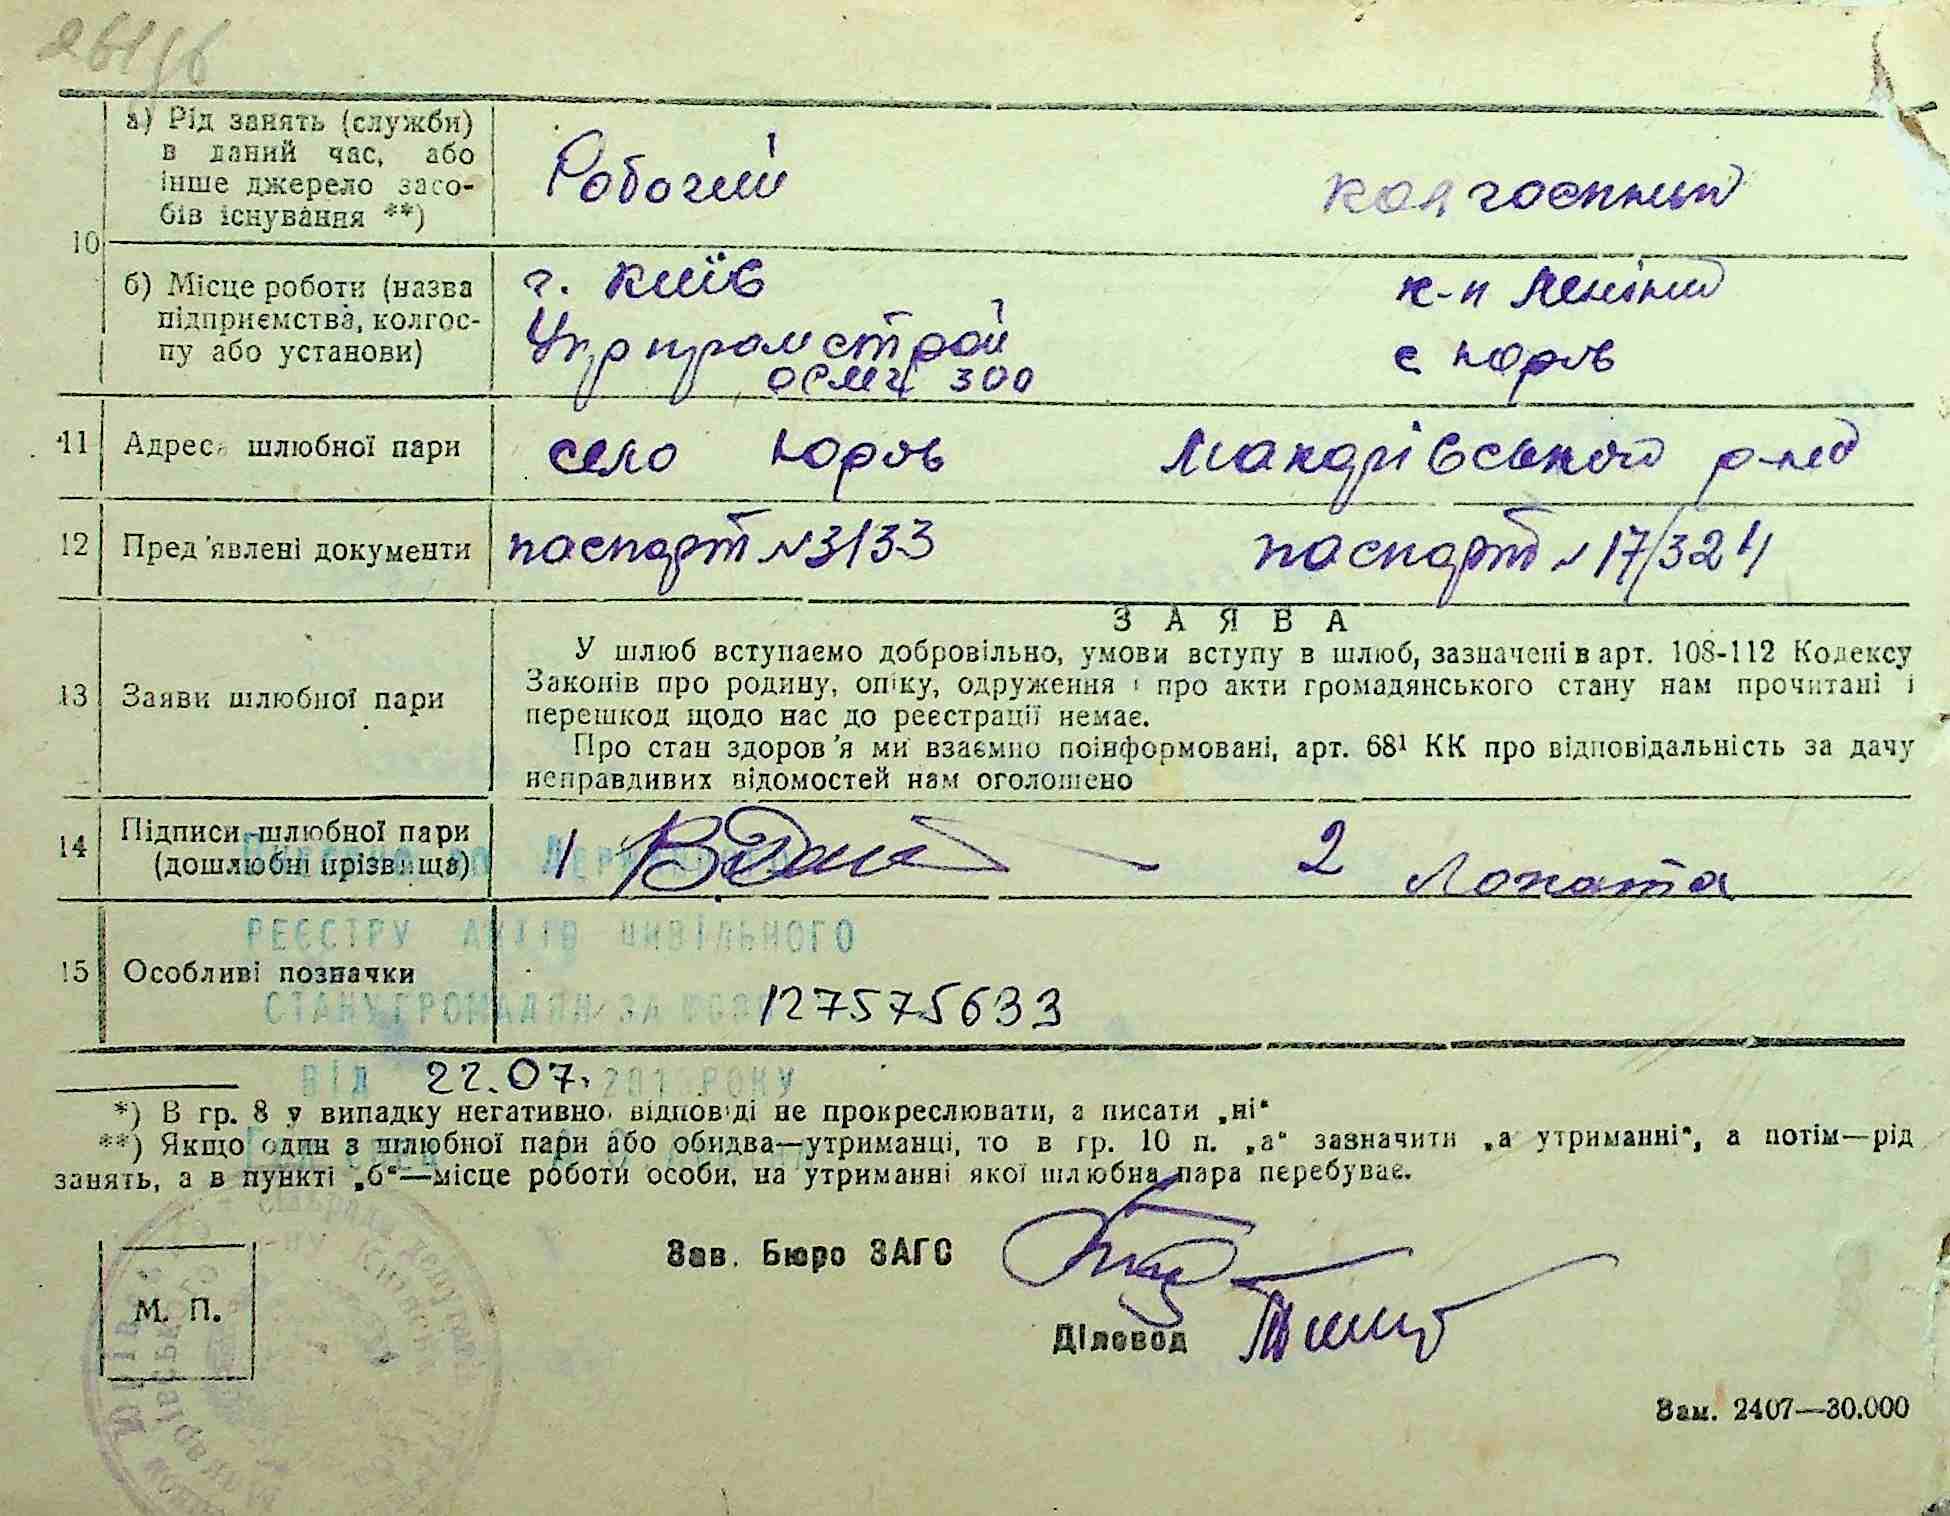 10
а) Рід занять (служби)
в даний час, або
інше джерело засо-
бів існування **)
Робочий
колгоспниц
б) Місце роботи (назва
підприємства, колгос-
пу або установи)
г. Київ
Укрпромстрой
ОСМЧ 300
к-п Леніна
с Юрів
11 Адреса шлюбної пари
село Юрів Макарівського р-ну
12 Пред'явлені документи
паспорт №3133
паспорт № 17/324
ЗАЯВА
13 Заяви шлюбної пари
У шлюб вступаємо добровільно, умови вступу в шлюб, зазначені в арт. 108-112 Кодексу
Законів про родину, опіку, одруження і про акти громадянського стану нам прочитані і
перешкод щодо нас до реєстрації немає.
Про стан здоров'я ми взаємно поінформовані, арт. 68¹ КК про відповідальність за дачу
неправдивих відомостей нам оголошено
14 Підписи шлюбної пари
(дошлюбні прізвища)
1
2 Лопата
РЕЄСТРУ АКТІВ ЦИВІЛЬНОГО
15 Особливі позначки
СТАНУ ГРОМАДЯН ЗА 127575633
ВІД 22.07. 201 РОКУ
*) В гр. 8 у випадку негативної відповіді не прокреслювати, а писати „ні“
**) Якщо один з шлюбної пари або обидва—утриманці, то в гр. 10 п. „а“ зазначити „а утриманні“, а потім—рід
занять, а в пункті „б“—місце роботи особи, на утриманні якої шлюбна пара перебуває.
Зав. Бюро ЗАГС
М. П.
Діловод
Зам. 2407—30.000